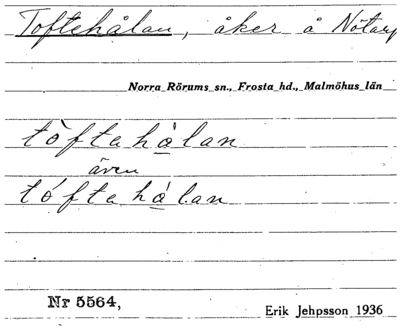 Toftehålan, åker å Nötarp
Norra Rörums sn., Frosta hd., Malmöhus län
tòftahàlan
även
tóftahálan
Nr 5564,
Erik Jehpsson 1936